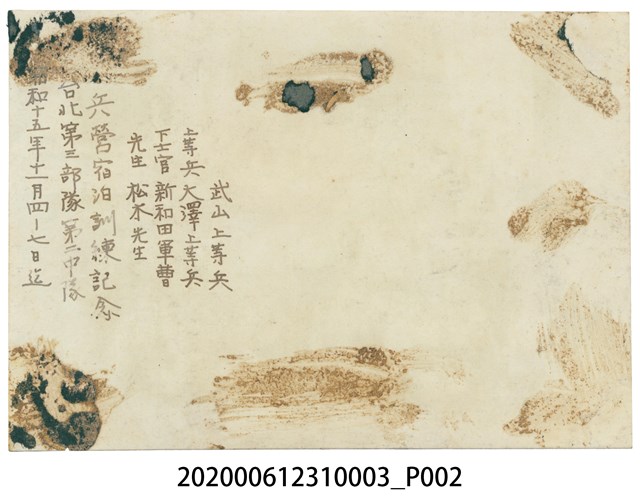 武山上等兵
上等兵 大澤上等兵
下士官 新和田軍曹
先生 松木先生
兵營宿泊訓練記念
台北第三部隊第二中隊
昭和十五年十一月四-七日迄
202000612310003_P002